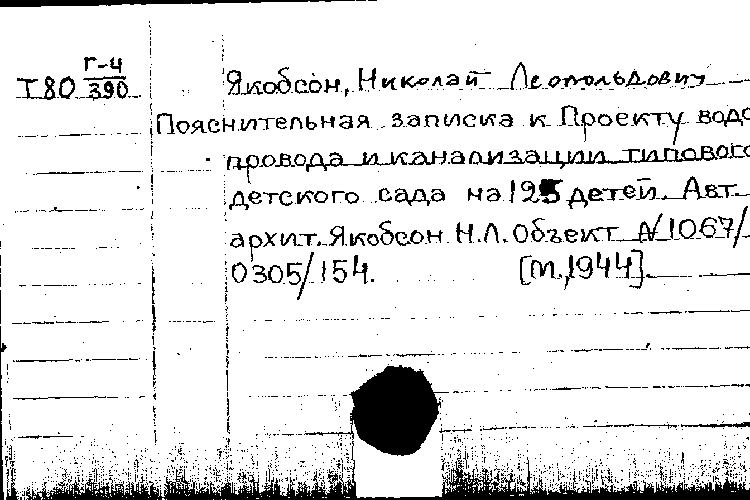 Т80 Г-4/390
Якобсон, Николай Леопольдович
Пояснительная записка к Проекту водо
провода и канализации типового
детского сада на 125 детей. Авт.
архит. Якобсон Н.Л. Объект №1067/
0305/154. [М., 1944].